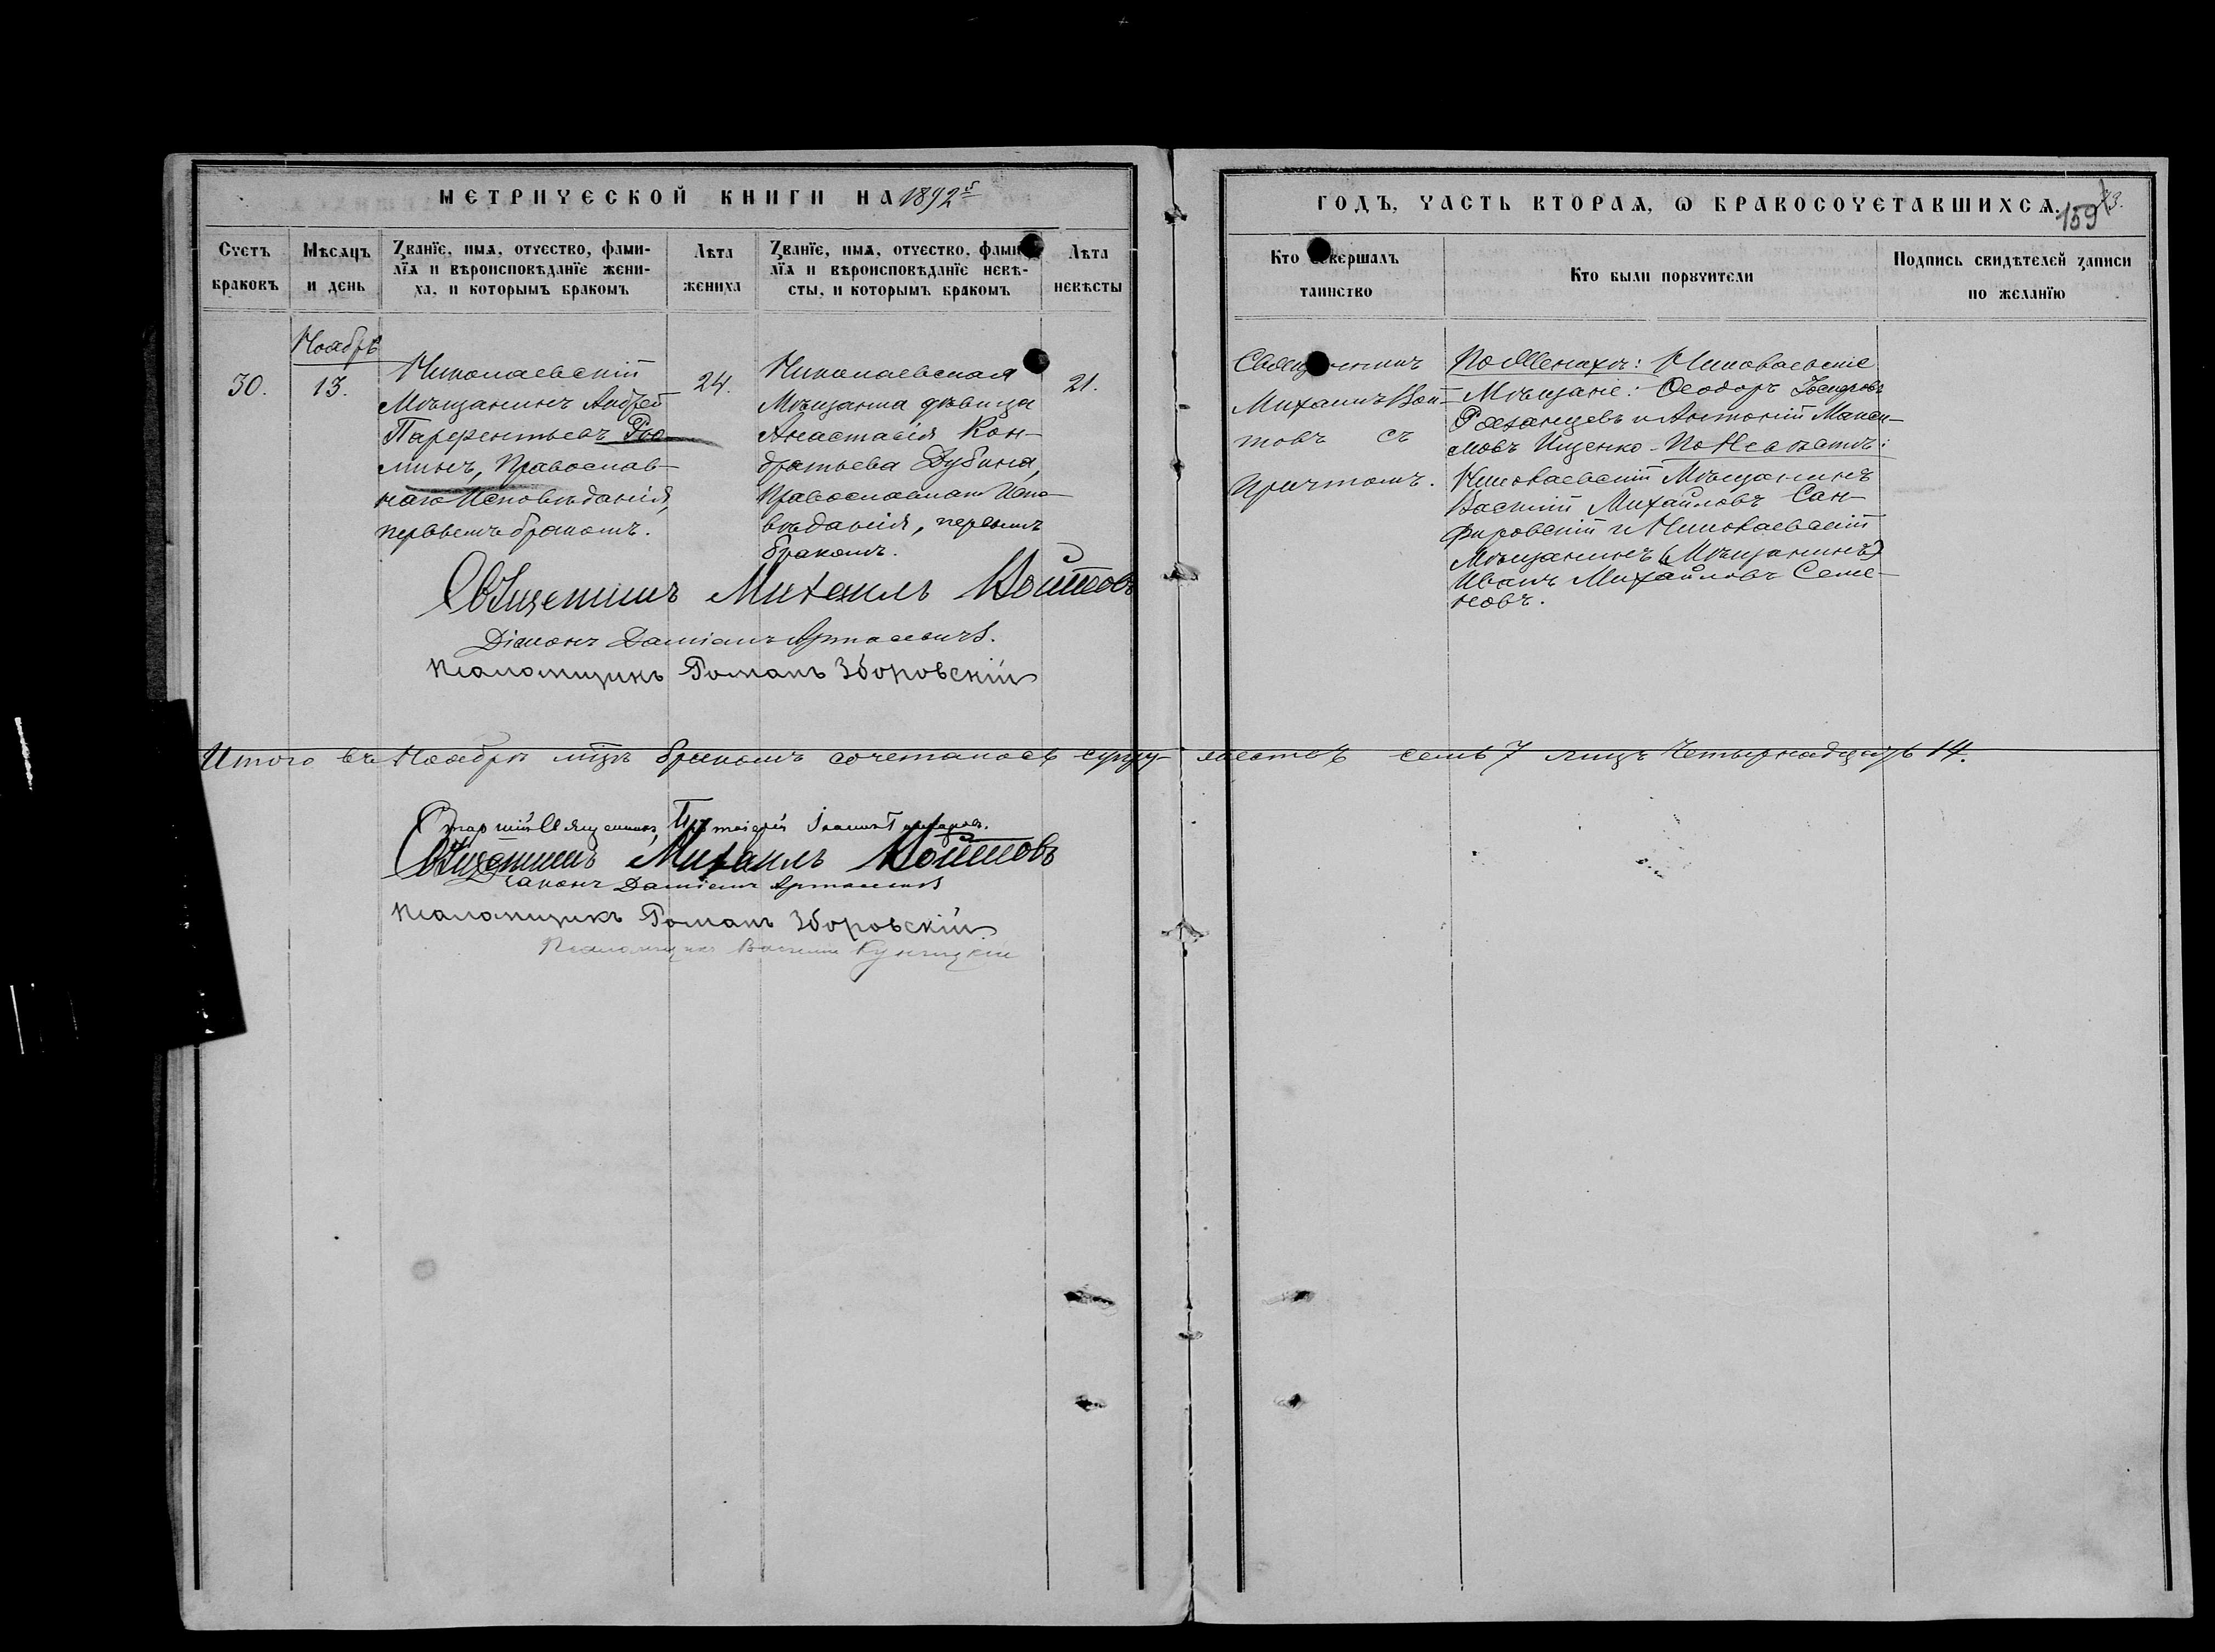 МЕТРИЧЕСКОЙ КНИГИ НА 1892й
ГОДЪ, ЧАСТЬ ВТОРАѦ, Ѡ БРАКОСОЧЕТАВШИХСѦ.
159
Счетъ браковъ
Мѣсѧцъ и день
Званїе, имѧ, отчество, фами-
лїѧ и вѣроисповѣданїе жени-
ха, и которымъ бракомъ
Лѣта жениха
Званїе, имѧ, отчество,
лїѧ и вѣроисповѣданїе невѣ-
сты, и которымъ бракомъ
Лѣта невѣсты
Кто
таинство
Кто были порꙋчители
Подпись свидѣтелей записи
по желанїю
Ноябрь
30.
13.
Николаевскій
Мѣщанинъ Андрей
Парфентьевъ
минъ, Православ-
наго Исповѣданія,
первымъ бракомъ.
24.
Николаевская
Мѣщанка дѣвица
Анастасія Кон-
дратьева Дубина,
Православнаго Испо-
вѣданія, первымъ
бракомъ.
21.
Михаилъ Вой-
товъ съ
причтомъ.
По Женихѣ: Николаевскіе
Мѣщане: Ѳеодоръ
Рязанцевъ и Антоній Макси-
мовъ Ищенко. По Невѣстѣ:
Николаевскій Мѣщанинъ
Василій Михайловъ Сан-
фировскій и Николаевскій
Мѣщанинъ (Мѣщанинъ)
Иванъ Михайловъ Семе-
новъ.
Священникъ Михаилъ Войтовъ
Діаконъ Даміанъ
Псаломщикъ Романъ Зборовскій
Итого въ Ноябрѣ мцѣ бракомъ сочеталось супру- жествъ семь 7 лицъ Четырнадцать 14.
Старшій Священникъ, Протоіерей Іоаннъ
Священникъ Михаилъ Войтовъ
Діаконъ Даміанъ
Псаломщикъ Романъ Зборовскій
Псаломщикъ Василій